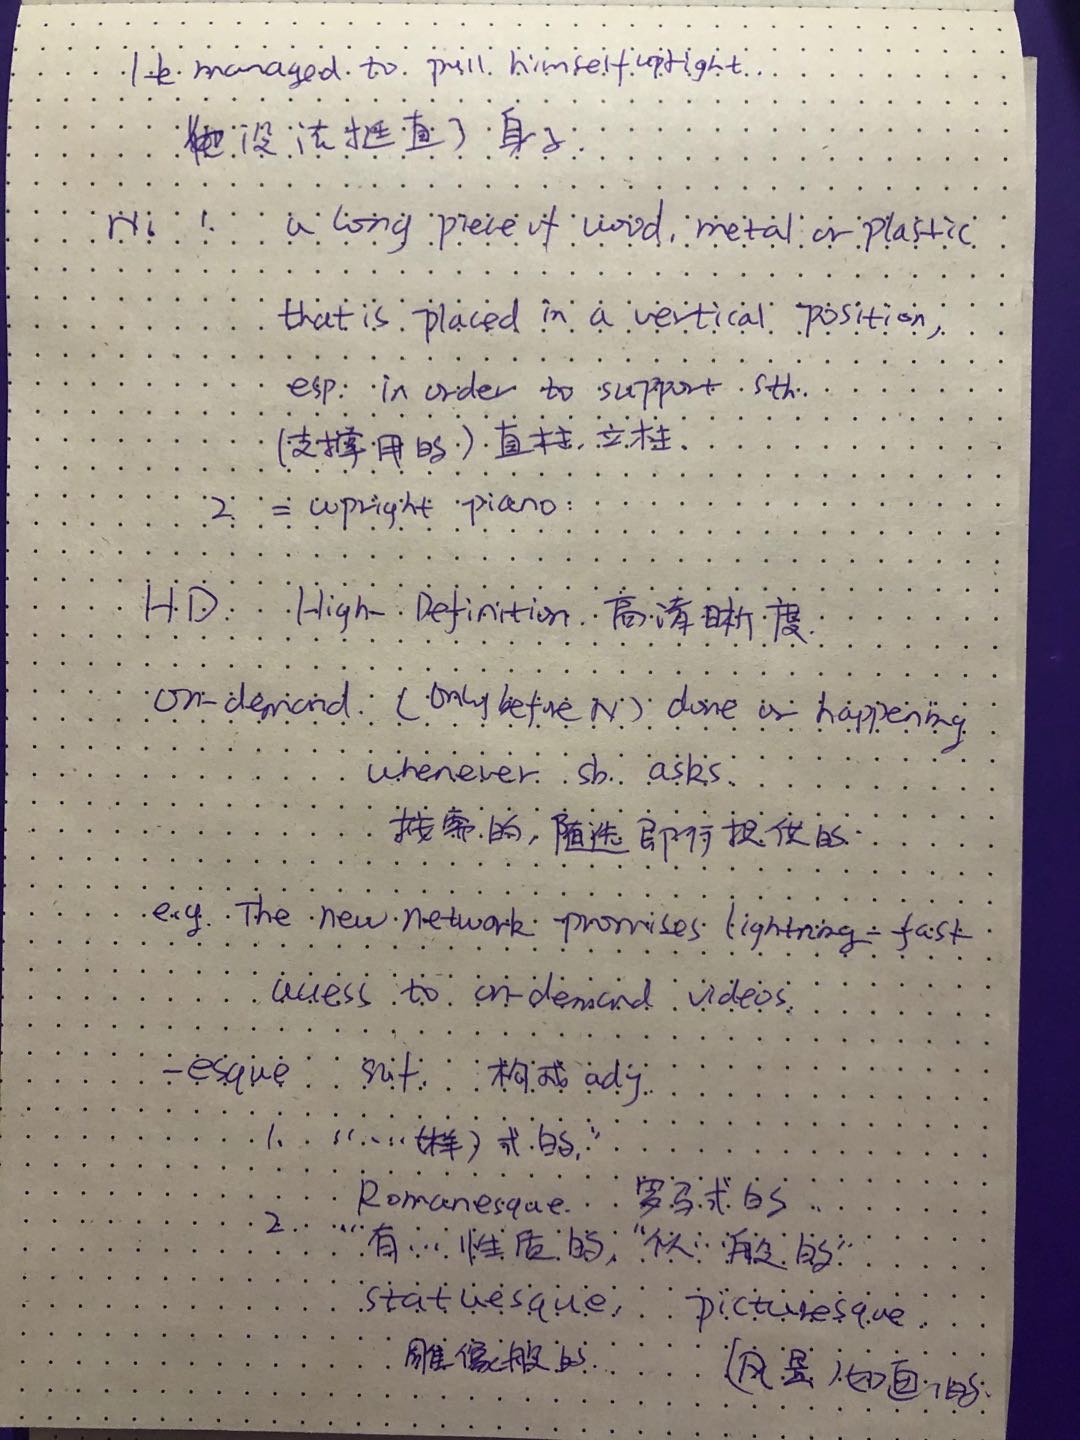 He managed to pull himself upright.
他设法挺直了身子.
N: 1. a long piece of wood, metal or plastic
that is placed in a vertical position,
esp. in order to support sth.
(支撑用的) 直柱, 立柱.
2 = upright piano.
HD. High-Definition. 高清晰度.
on-demand. (only before N) done or happening
whenever sb. asks.
按需的, 随选即行提供的.
e.g. The new network promises lightning-fast
access to on-demand videos.
-esque suf. 构成 adj.
1. "……(样)式的,"
Romanesque. 罗马式的
2. "有…性质的, "似…般的"
statuesque, picturesque
雕像般的 (风景) 如画的